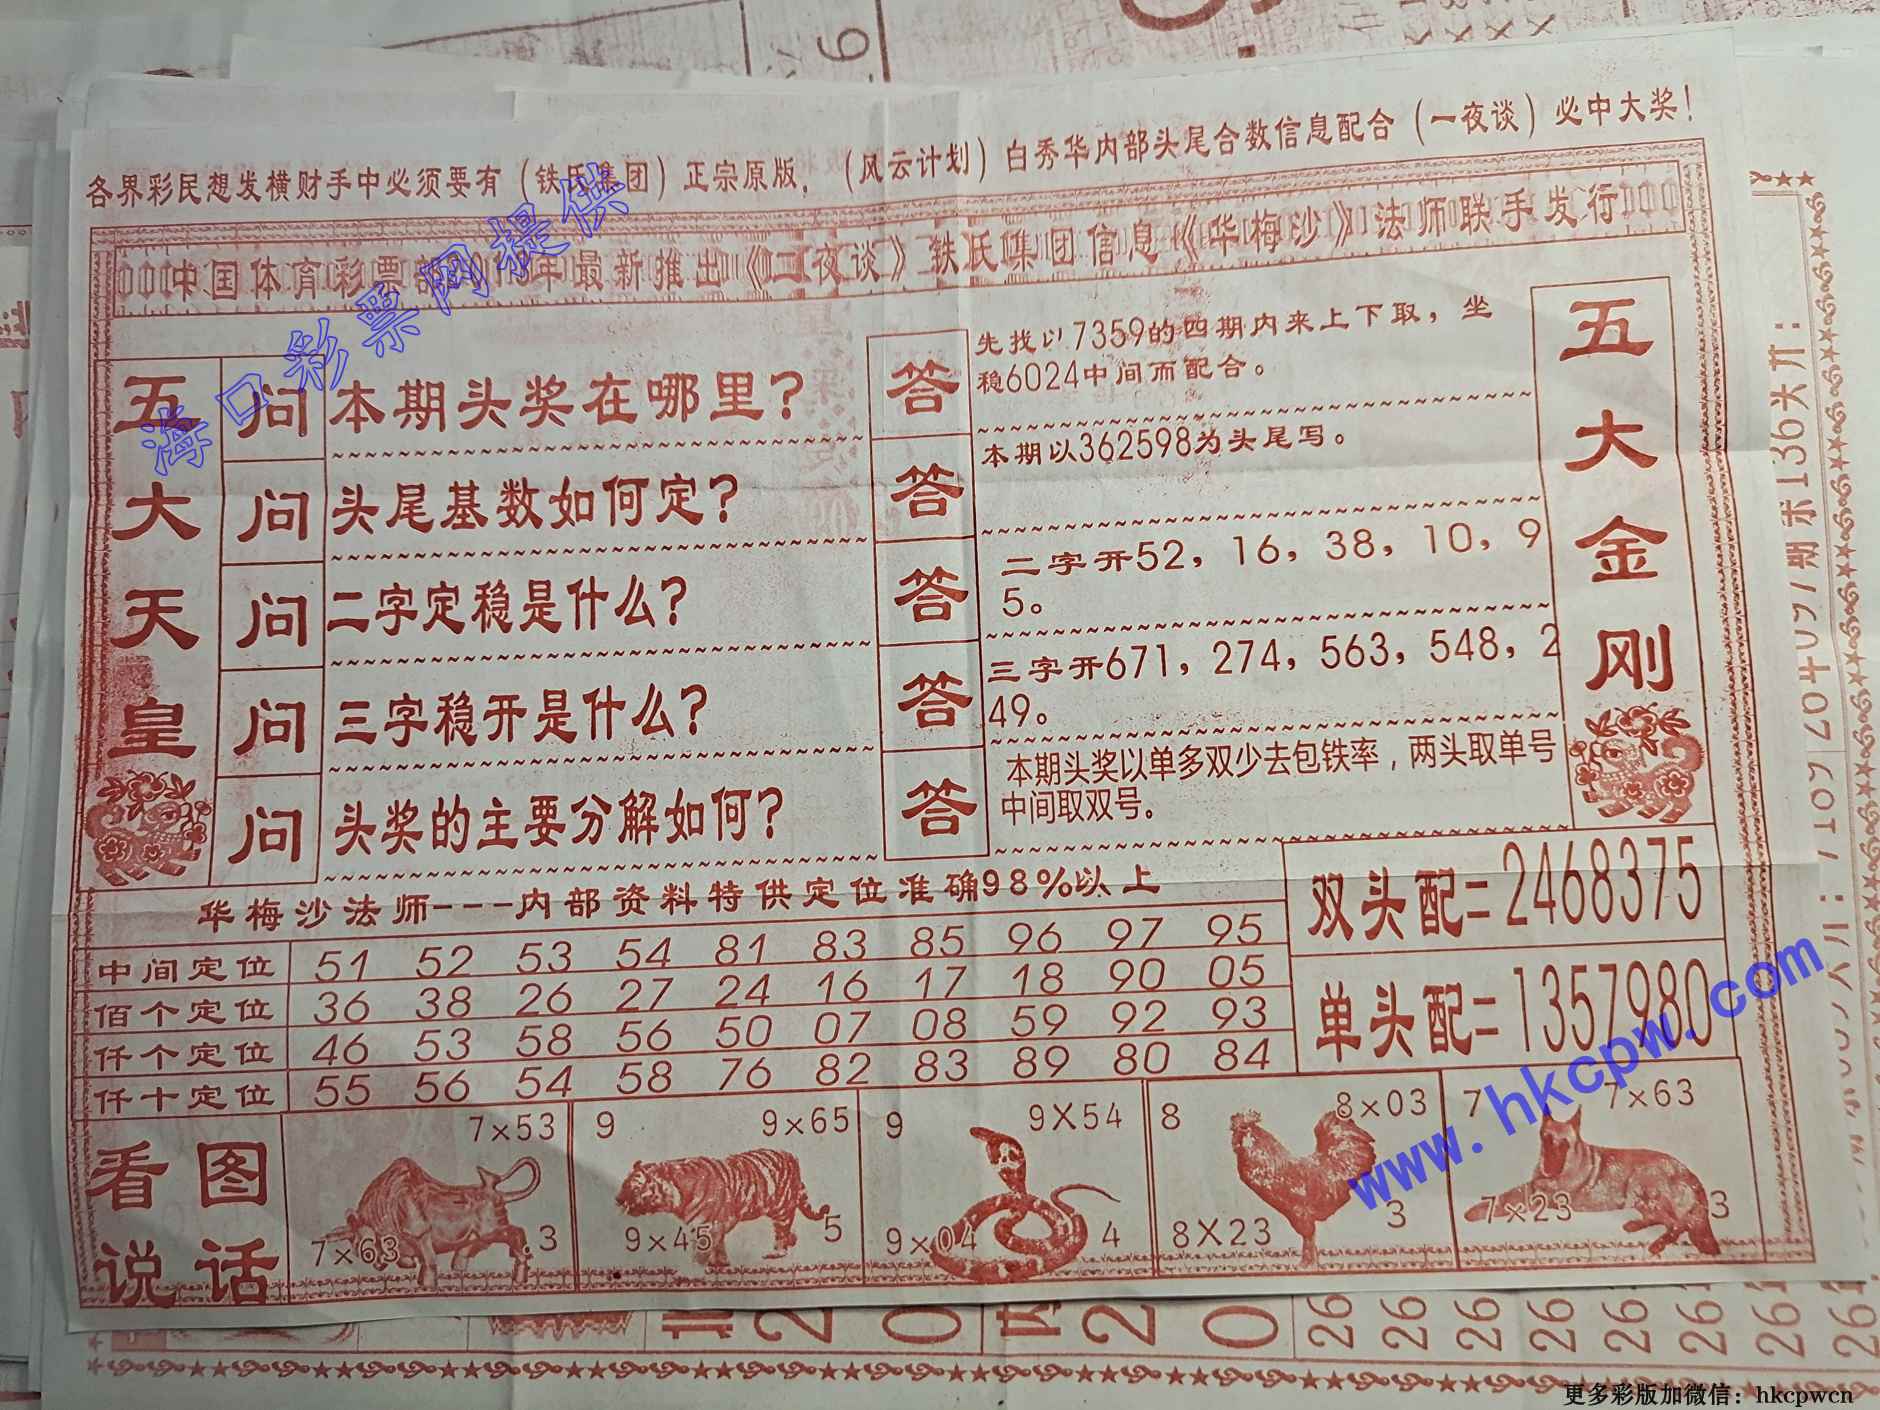 各界彩民想发横财手中必须要有(铁氏集团)正宗原版,(风云计划)白秀华内部头尾合数信息配合(一夜谈)必中大奖!
中国体育彩票部 年最新推出《二夜谈》铁氏集团信息《华梅沙》法师联手发行
海口彩票网提供
五大天皇
问 本期头奖在哪里?
答 先找以7359的四期内来上下取,坐
稳6024中间而配合。
问 头尾基数如何定?
答 本期以362598为头尾写。
问 二字定稳是什么?
答 二字开52,16,38,10,9
5。
问 三字稳开是什么?
答 三字开671,274,563,548,2
49。
问 头奖的主要分解如何?
答 本期头奖以单多双少去包铁率,两头取单号
中间取双号。
五大金刚
华梅沙法师---内部资料特供定位准确98%以上
中间定位 51 52 53 54 81 83 85 96 97 95
佰个定位 36 38 26 27 24 16 17 18 90 05
仟个定位 46 53 58 56 50 07 08 59 92 93
仟十定位 55 56 54 58 76 82 83 89 80 84
双头配=2468375
单头配=1357980
看图
说话
7×53
7×63 3
9 9×65
9×45 5
9 9X54
9×04 4
8 8×03
8X23 3
7 7×63
7×23 3
www.hkcpw.com
更多彩版加微信:hkcpwcn